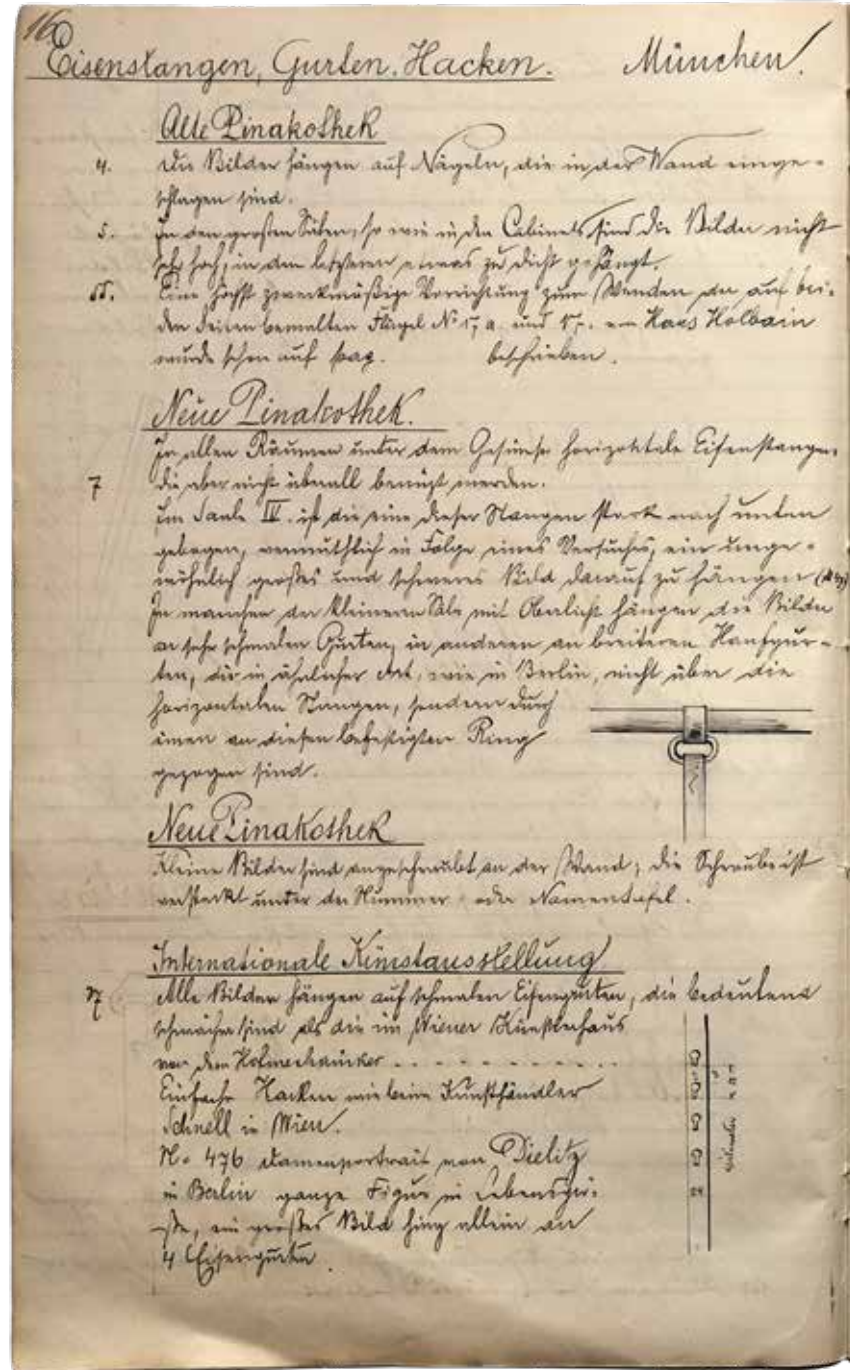 16
Eisenstangen, Gurten, Hacken. München.
Alte Pinakothek
4. Die Bilder hängen auf Nägeln, die in der Wand einge-
schlagen sind.
5. In den großen Sälen, so wie in den Cabinets sind die Bilder nicht
sehr hoch, in den letzteren etwas zu dicht gehängt.
Eine höchst zweckmäßige Vorrichtung zum Wenden der auf bei-
den Seiten bemalten Flügel No 17, a und von Hans Holbain
wurde schon auf pag. beschrieben.
Neue Pinakothek.
In allen Räumen unter dem Gesimse horizontale Eisenstangen,
7 die aber nicht überall benüzt werden.
Im Saale IV. ist die eine dieser Stangen stark nach unten
gebogen, vermuthlich in Folge eines Versuches, ein unge-
wöhnlich großes und schweres Bild darauf zu hängen
In manchen der kleineren Säle mit Oberlicht hängen die Bilder
an sehr schmalen Gurten, in anderen an breiteren Hanfgur-
ten, die in ähnlicher Art, wie in Berlin, nicht über die
horizontalen Stangen, sondern durch
einen an diesen befestigten Ring
gezogen sind.
Neue Pinakothek
Kleine Bilder sind angeschraubt an der Wand; die Schraube ist
versteckt unter der Nummer oder Namentafel.
Internationale Kunstausstellung
Alle Bilder hängen auf schmalen Eisengurten, die bedeutend
schwächer sind als die im Wiener Künstlerhaus
von dem
Einfache Hacken wie beim Kunsthändler
Schnell in Wien.
No 476 Damenportrait von Dielitz
in Berlin ganze Figur in Lebensgrö-
ße, ein großes Bild hing allein an
4 Eisengurten.